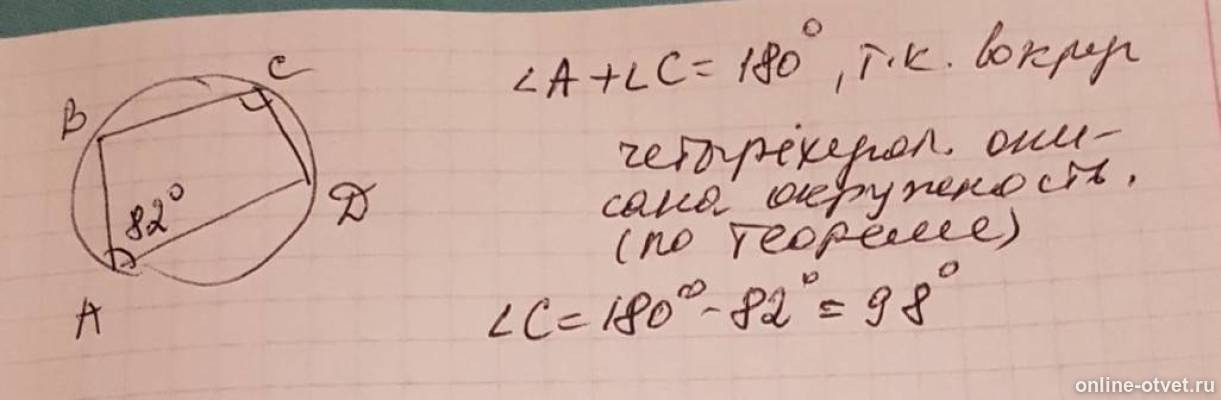 ∠A+∠C=180°, т.к. вокруг
четырёхугол. опи-
сана окружность.
(по теореме)
∠C=180°-82°=98°
B
C
82°
D
A
online-otvet.ru